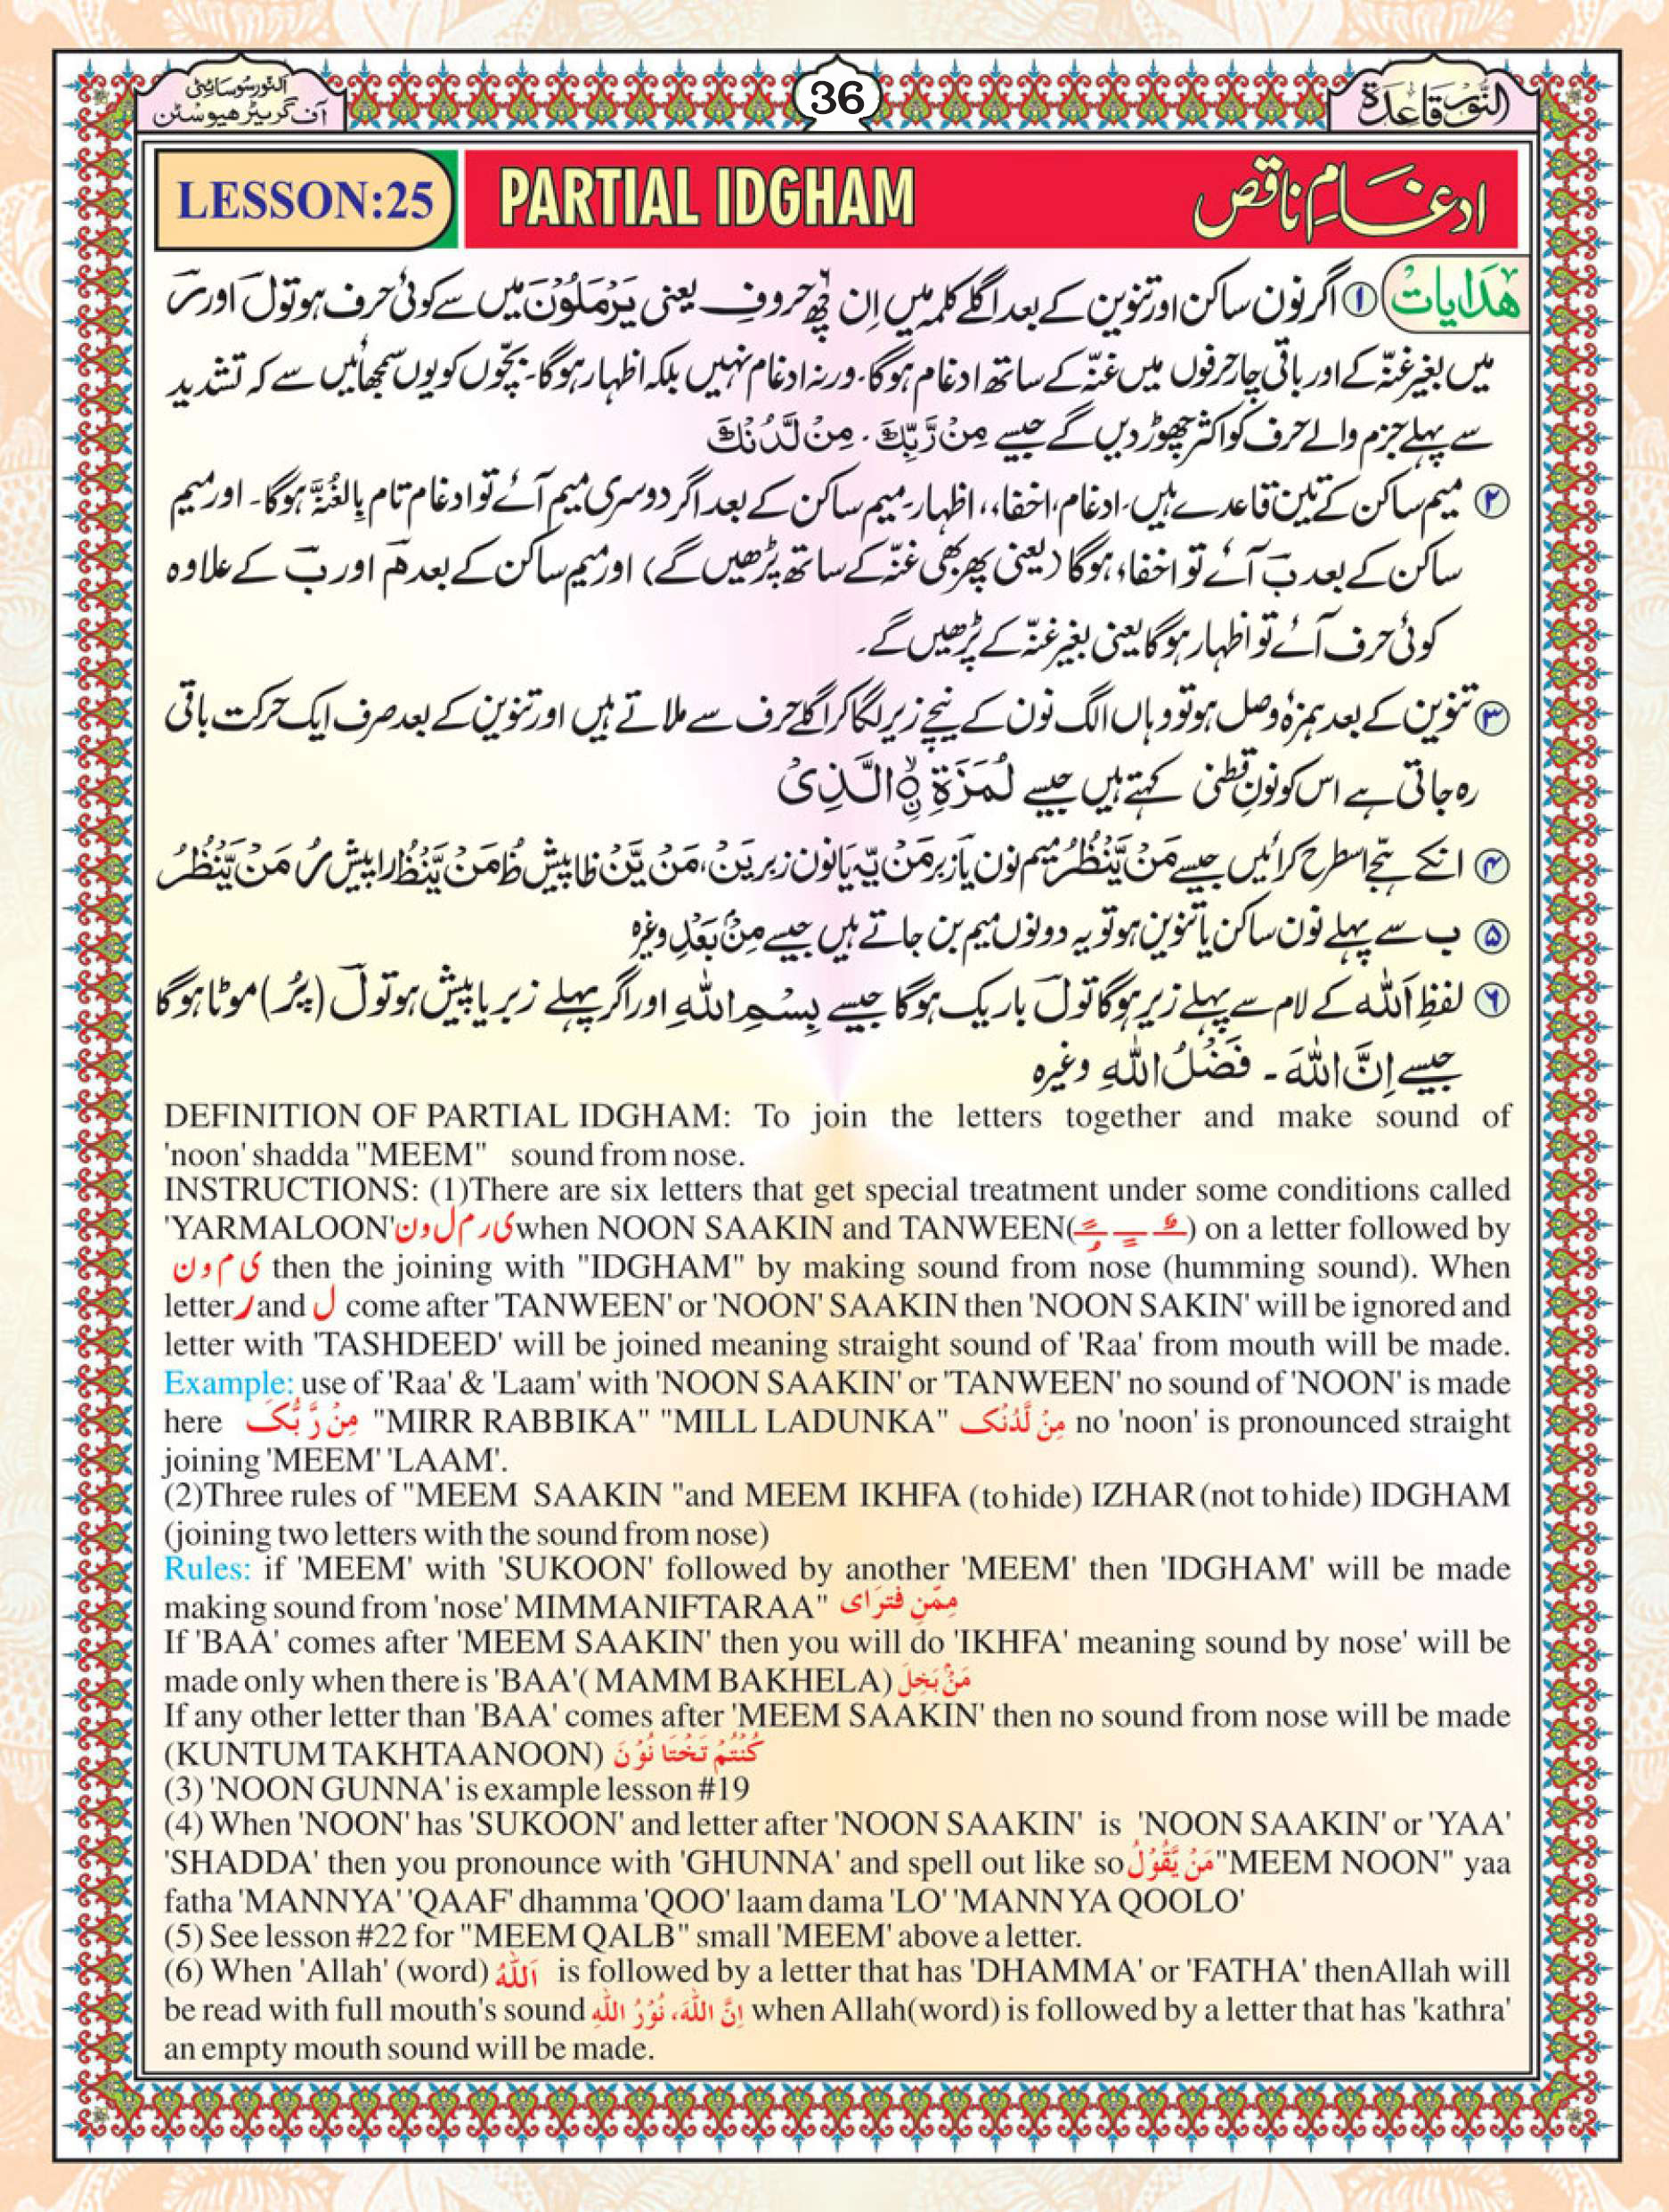 النورسوسائٹی
آف گریٹر ھیوسٹن
36
النور قاعدة
LESSON:25
PARTIAL IDGHAM
ادغامِ ناقص
ھدایات ۱ اگر نون ساکن اور تنوین کے بعد اگلے کلمہ میں اِن چھ حروف یعنی یَرْمَلُوْنَ میں سے کوئی حرف ہو تو ل اور ر
میں بغیر غنّہ کے اور باقی چار حرفوں میں غنّہ کے ساتھ ادغام ہوگا۔ ورنہ ادغام نہیں بلکہ اظہار ہوگا۔ بچّوں کو یوں سمجھائیں سے کہ تشدید
سے پہلے جزم والے حرف کو اکثر چھوڑ دیں گے جیسے مِنْ رَّبِّكَ ۔ مِنْ لَّدُنْكَ
۲ میم ساکن کے تین قاعدے ہیں۔ ادغام، اخفاء، اظہار۔ میم ساکن کے بعد اگر دوسری میم آئے تو ادغام تام بِالغُنَّہ ہوگا۔ اور میم
ساکن کے بعد ب آئے تو اخفاء ہوگا (یعنی پھر بھی غنّہ کے ساتھ پڑھیں گے) اور میم ساکن کے بعد م اور ب کے علاوہ
کوئی حرف آئے تو اظہار ہوگا یعنی بغیر غنّہ کے پڑھیں گے۔
۳ تنوین کے بعد ہمزہ وصل ہو تو وہاں الگ نون کے نیچے زیر لگا کر اگلے حرف سے ملاتے ہیں اور تنوین کے بعد صرف ایک حرکت باقی
رہ جاتی ہے اس کو نونِ قطنی کہتے ہیں جیسے لُمَزَةِ ۨالَّذِیْ
۴ انکے ہجے اسطرح کرائیں جیسے مَنْ یَّنْظُرُ میم نون یا زبر مَنْ یَّ یا نون زبر یَنْ، مَنْ یَّنْ ظا پیش ظُ مَنْ یَّنْظُ را پیش رُ مَنْ یَّنْظُرُ
۵ ب سے پہلے نون ساکن یا تنوین ہو تو یہ دونوں میم بن جاتے ہیں جیسے مِنْۢ بَعْدِ وغیرہ
۶ لفظِ اَللہ کے لام سے پہلے زیر ہوگا تو ل باریک ہوگا جیسے بِسْمِ اللهِ اور اگر پہلے زبر یا پیش ہو تو ل (پُر) موٹا ہوگا
جیسے اِنَّ اللهَ ۔ فَضْلُ اللهِ وغیرہ
DEFINITION OF PARTIAL IDGHAM: To join the letters together and make sound of
'noon' shadda "MEEM" sound from nose.
INSTRUCTIONS: (1)There are six letters that get special treatment under some conditions called
'YARMALOON' ی ر م ل و ن when NOON SAAKIN and TANWEEN(ـً ـٍ ـٌ) on a letter followed by
ی م و ن then the joining with "IDGHAM" by making sound from nose (humming sound). When
letter ر and ل come after 'TANWEEN' or 'NOON' SAAKIN then 'NOON SAKIN' will be ignored and
letter with 'TASHDEED' will be joined meaning straight sound of 'Raa' from mouth will be made.
Example: use of 'Raa' & 'Laam' with 'NOON SAAKIN' or 'TANWEEN' no sound of 'NOON' is made
here مِنْ رَّ بُّکَ "MIRR RABBIKA" "MILL LADUNKA" مِنْ لَّدُنْکَ no 'noon' is pronounced straight
joining 'MEEM' 'LAAM'.
(2)Three rules of "MEEM SAAKIN "and MEEM IKHFA (to hide) IZHAR (not to hide) IDGHAM
(joining two letters with the sound from nose)
Rules: if 'MEEM' with 'SUKOON' followed by another 'MEEM' then 'IDGHAM' will be made
making sound from 'nose' MIMMANIFTARAA" مِمَّنِ فتَرَای
If 'BAA' comes after 'MEEM SAAKIN' then you will do 'IKHFA' meaning sound by nose' will be
made only when there is 'BAA'( MAMM BAKHELA) مَنْۢ بَخِلَ
If any other letter than 'BAA' comes after 'MEEM SAAKIN' then no sound from nose will be made
(KUNTUM TAKHTAANOON) کُنْتُمْ تَخْتَا نُوْنَ
(3) 'NOON GUNNA' is example lesson #19
(4) When 'NOON' has 'SUKOON' and letter after 'NOON SAAKIN' is 'NOON SAAKIN' or 'YAA'
'SHADDA' then you pronounce with 'GHUNNA' and spell out like so مَنْ یَّقُوْلُ "MEEM NOON" yaa
fatha 'MANNYA' 'QAAF' dhamma 'QOO' laam dama 'LO' 'MANN YA QOOLO'
(5) See lesson #22 for "MEEM QALB" small 'MEEM' above a letter.
(6) When 'Allah' (word) اَللهُ is followed by a letter that has 'DHAMMA' or 'FATHA' thenAllah will
be read with full mouth's sound اِنَّ اللهَ، نُوْرُ اللهِ when Allah(word) is followed by a letter that has 'kathra'
an empty mouth sound will be made.